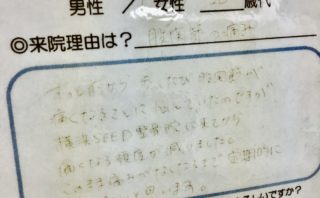 男性 / 女性 歳代
◎来院理由は? 股関節の痛み
ずっと前から 股関節が
痛くなることに悩んでいたのですが
横浜SEED整骨院に来てから
痛くなる頻度が減りました。
このまま痛みがなくなるまで定期的に
思います。
ですか?